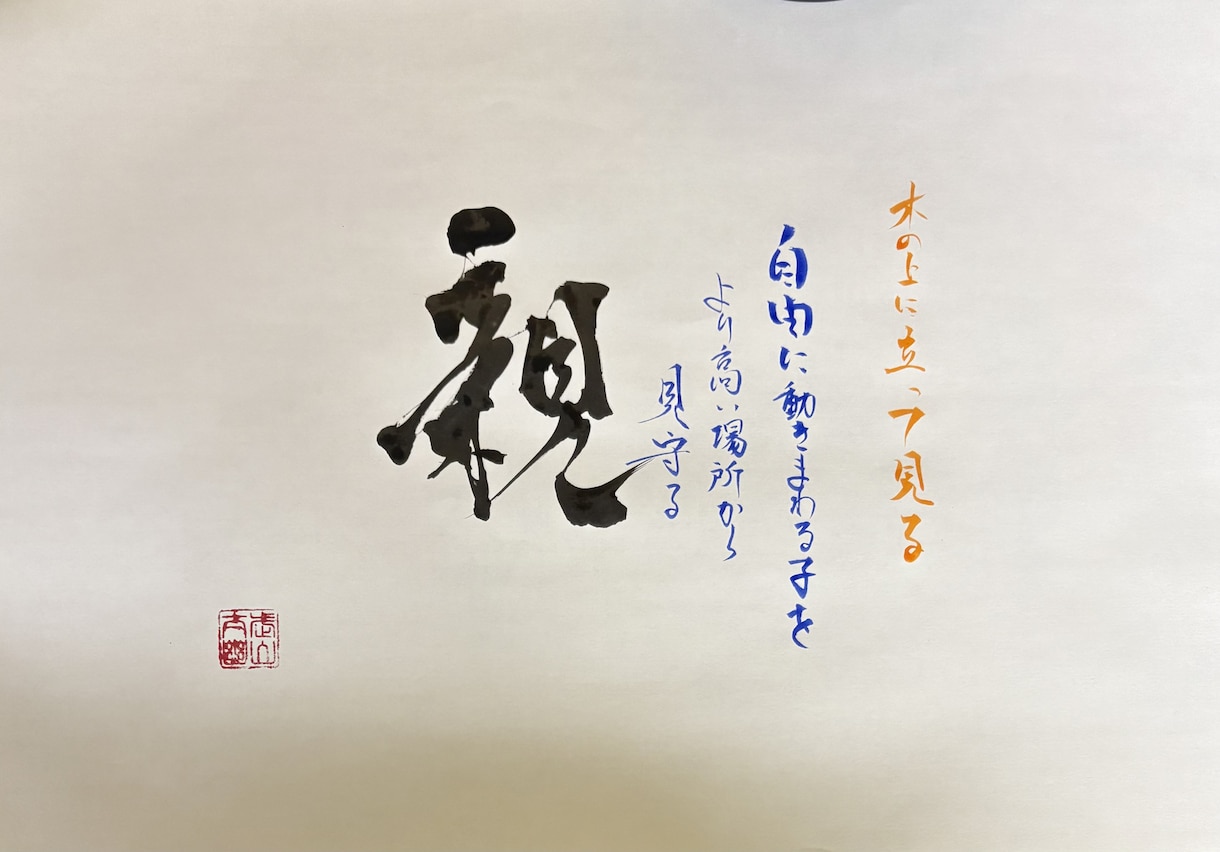 木の上に立って見る
自由に動きまわる子を
より高い場所から
見守る
親